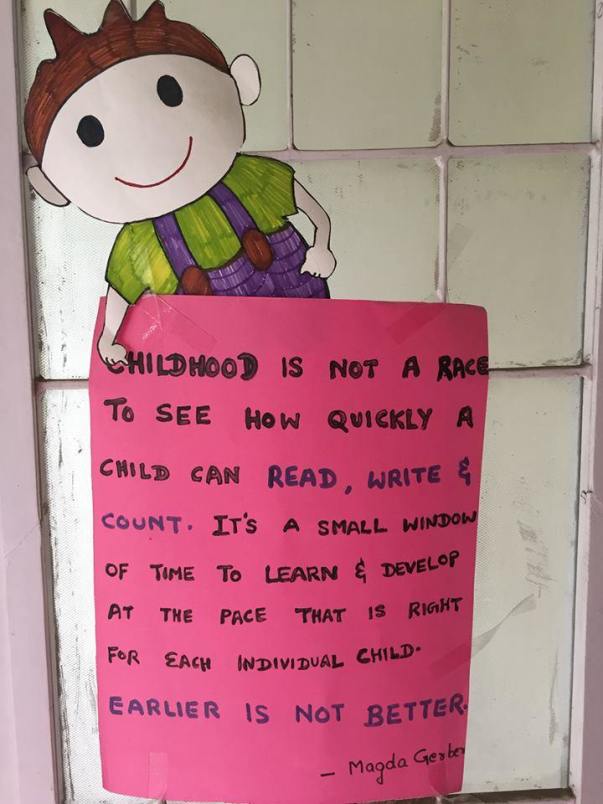 CHILDHOOD IS NOT A RACE
TO SEE HOW QUICKLY A
CHILD CAN READ, WRITE &
COUNT. IT'S A SMALL WINDOW
OF TIME TO LEARN & DEVELOP
AT THE PACE THAT IS RIGHT
FOR EACH INDIVIDUAL CHILD.
EARLIER IS NOT BETTER.
- Magda Gerber